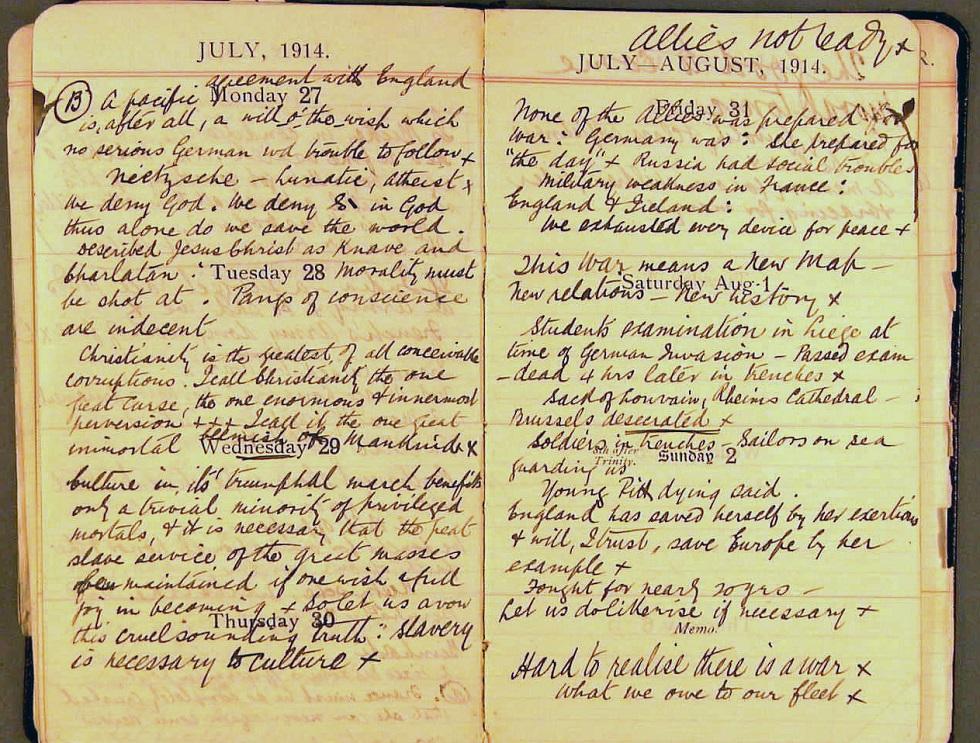 JULY, 1914.
agreement with England
Monday 27
(13) A pacific
is, after all, a will o' the wish which
no serious German wd trouble to follow x
Neetzsche – Lunatic, atheist x
We deny God. We deny in God
thus alone do we save the world.
Described Jesus Christ as Knave and
Charlatan : Morality must
Tuesday 28
be shot at. Pangs of conscience
are indecent
Christianity is the greatest of all conceivable
corruptions. I call Christianity the one
great curse, the one enormous & innermost
perversion +++ I call it the one great
immortal blemish of Mankind x
Wednesday 29
Culture in its' triumphal march benefits
only a trivial minority of privileged
mortals, & it is necessary that the great
slave service of the great masses
be maintained if one wish a full
joy in becoming + So let us avow
Thursday 30
this cruel sounding truth: Slavery
is necessary to culture x
Allies not ready x
JULY—AUGUST, 1914.
Friday 31
None of the Allies was prepared for
War: Germany was: She prepared for
"the day" + Russia had social troubles
Military weakness in France:
England & Ireland:
We exhausted every device for peace +
This War means a New Map –
Saturday Aug. 1
New relations – New history x
Students examination in Liege at
time of German Invasion – Passed exam
– dead 4 hrs later in trenches x
Sack of Louvain, Rheims Cathedral –
Brussels desecrated x
Soldiers in trenches – Sailors on sea
8th after Trinity.
Sunday 2
guarding us
Young Pitt dying said.
England has saved herself by her exertions
& will, I trust, save Europe by her
example +
Fought for nearly 20 yrs –
Let us do likewise if necessary +
Memo.
Hard to realise there is a war x
What we owe to our fleet x